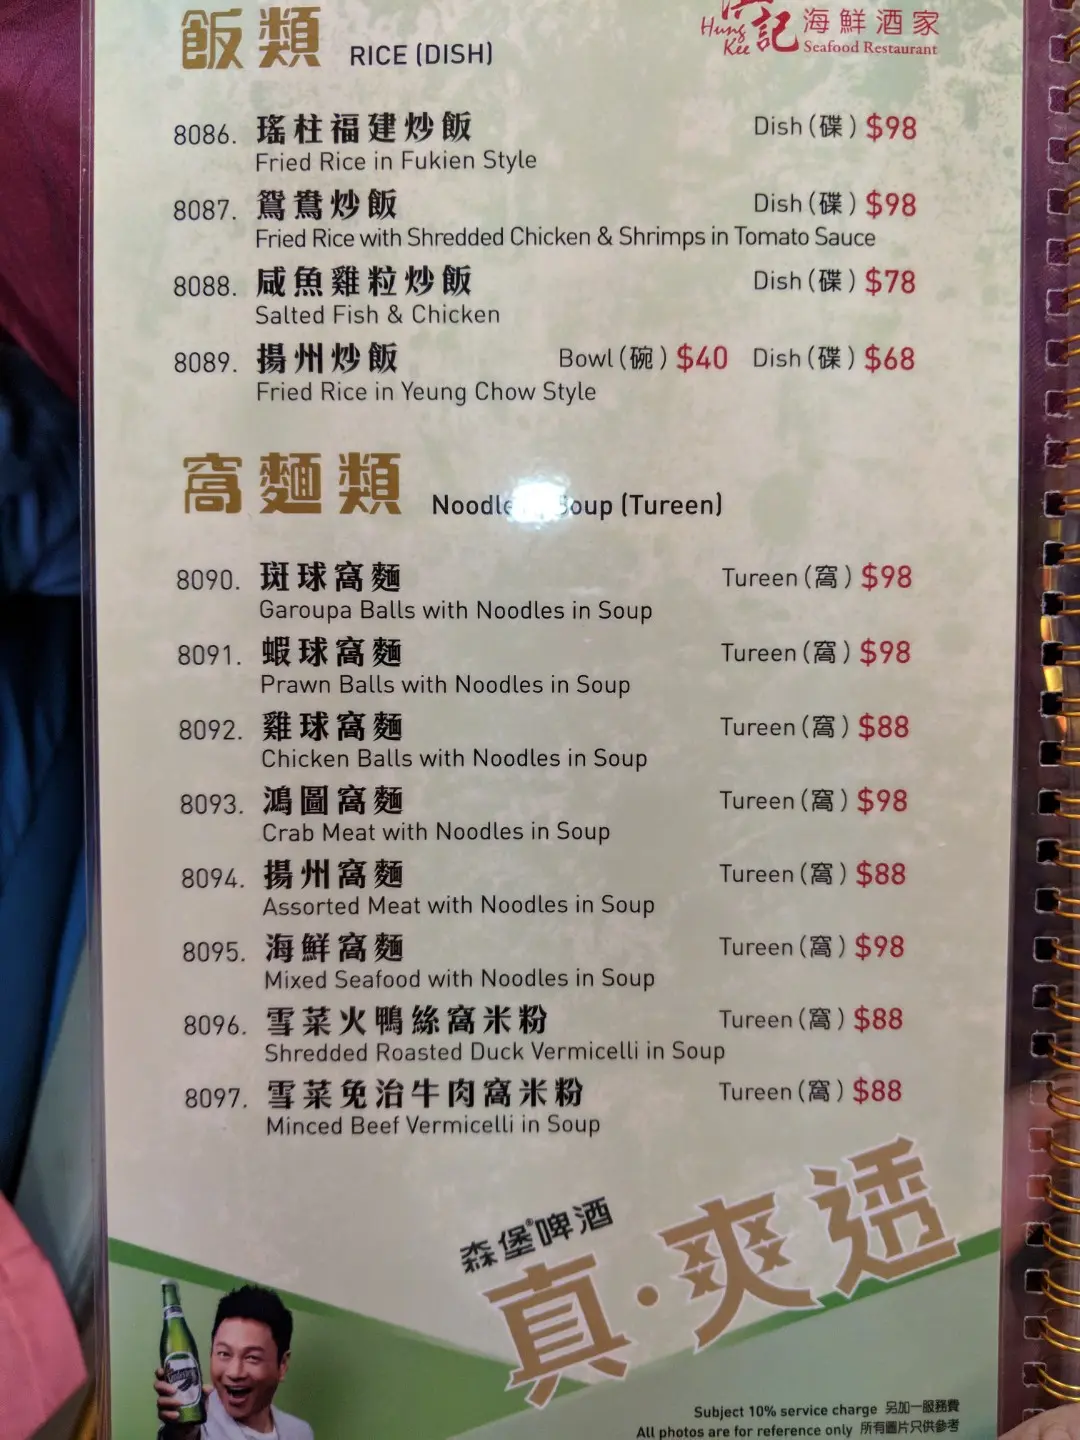 飯類 RICE (DISH)
Hung Kee 記 海鮮酒家
Seafood Restaurant
8086. 瑤柱福建炒飯 Dish (碟) $98
Fried Rice in Fukien Style
8087. 鴛鴦炒飯 Dish (碟) $98
Fried Rice with Shredded Chicken & Shrimps in Tomato Sauce
8088. 咸魚雞粒炒飯 Dish (碟) $78
Salted Fish & Chicken
8089. 揚州炒飯 Bowl (碗) $40 Dish (碟) $68
Fried Rice in Yeung Chow Style
窩麵類 Noodle Soup (Tureen)
8090. 斑球窩麵 Tureen (窩) $98
Garoupa Balls with Noodles in Soup
8091. 蝦球窩麵 Tureen (窩) $98
Prawn Balls with Noodles in Soup
8092. 雞球窩麵 Tureen (窩) $88
Chicken Balls with Noodles in Soup
8093. 鴻圖窩麵 Tureen (窩) $98
Crab Meat with Noodles in Soup
8094. 揚州窩麵 Tureen (窩) $88
Assorted Meat with Noodles in Soup
8095. 海鮮窩麵 Tureen (窩) $98
Mixed Seafood with Noodles in Soup
8096. 雪菜火鴨絲窩米粉 Tureen (窩) $88
Shredded Roasted Duck Vermicelli in Soup
8097. 雪菜免治牛肉窩米粉 Tureen (窩) $88
Minced Beef Vermicelli in Soup
森堡®啤酒
真·爽透
Subject 10% service charge 另加一服務費
All photos are for reference only 所有圖片只供參考